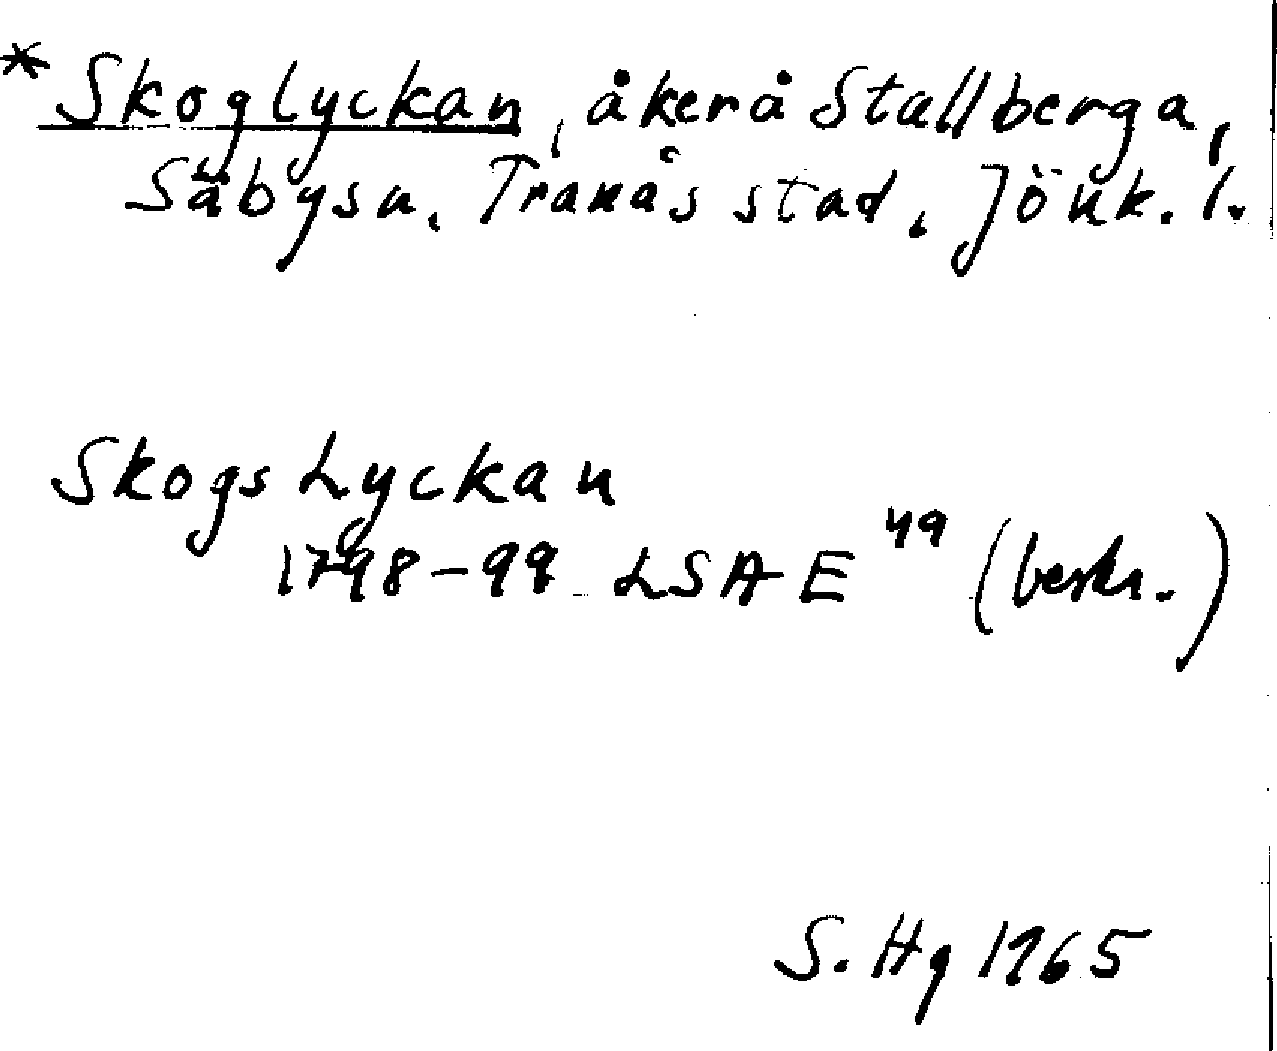 * Skoglyckan, åker å Stallberga,
Säbysn, Tranås stad, Jönk. l.
Skogs Lyckan
1798-99 LSA E 49 (beskr.)
S. Hg 1965